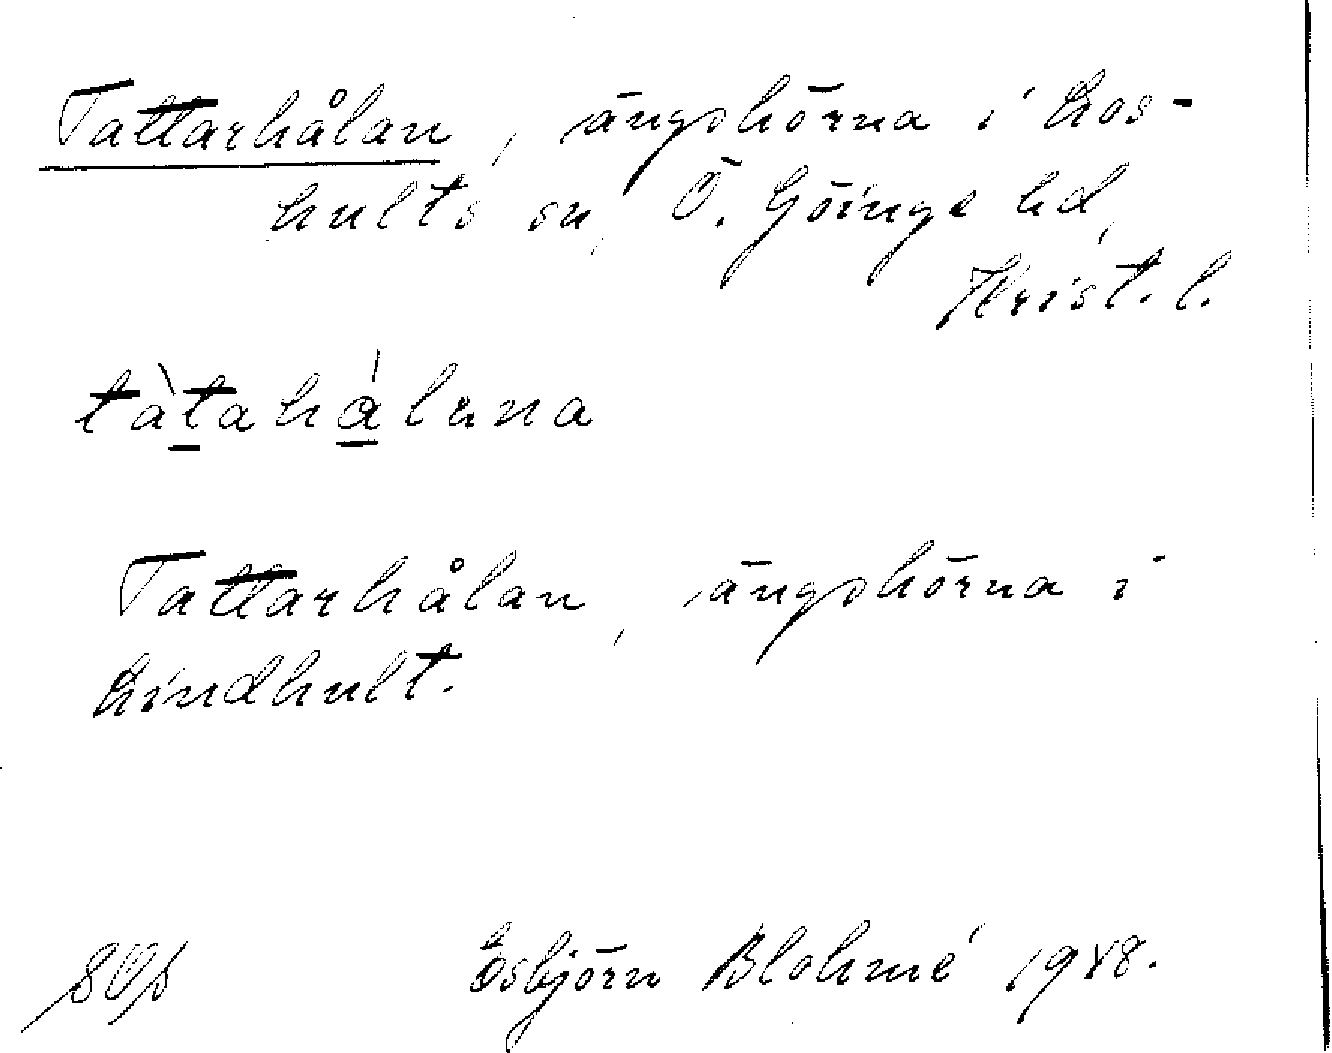 Tattarhålan, ängshörna i Los-
hults sn, Ö. Göinge hd,
Krist. l.
tàtahá lana
Tattarhålan, ängshörna i
Lindhult.
Esbjörn Blohmé 1948.